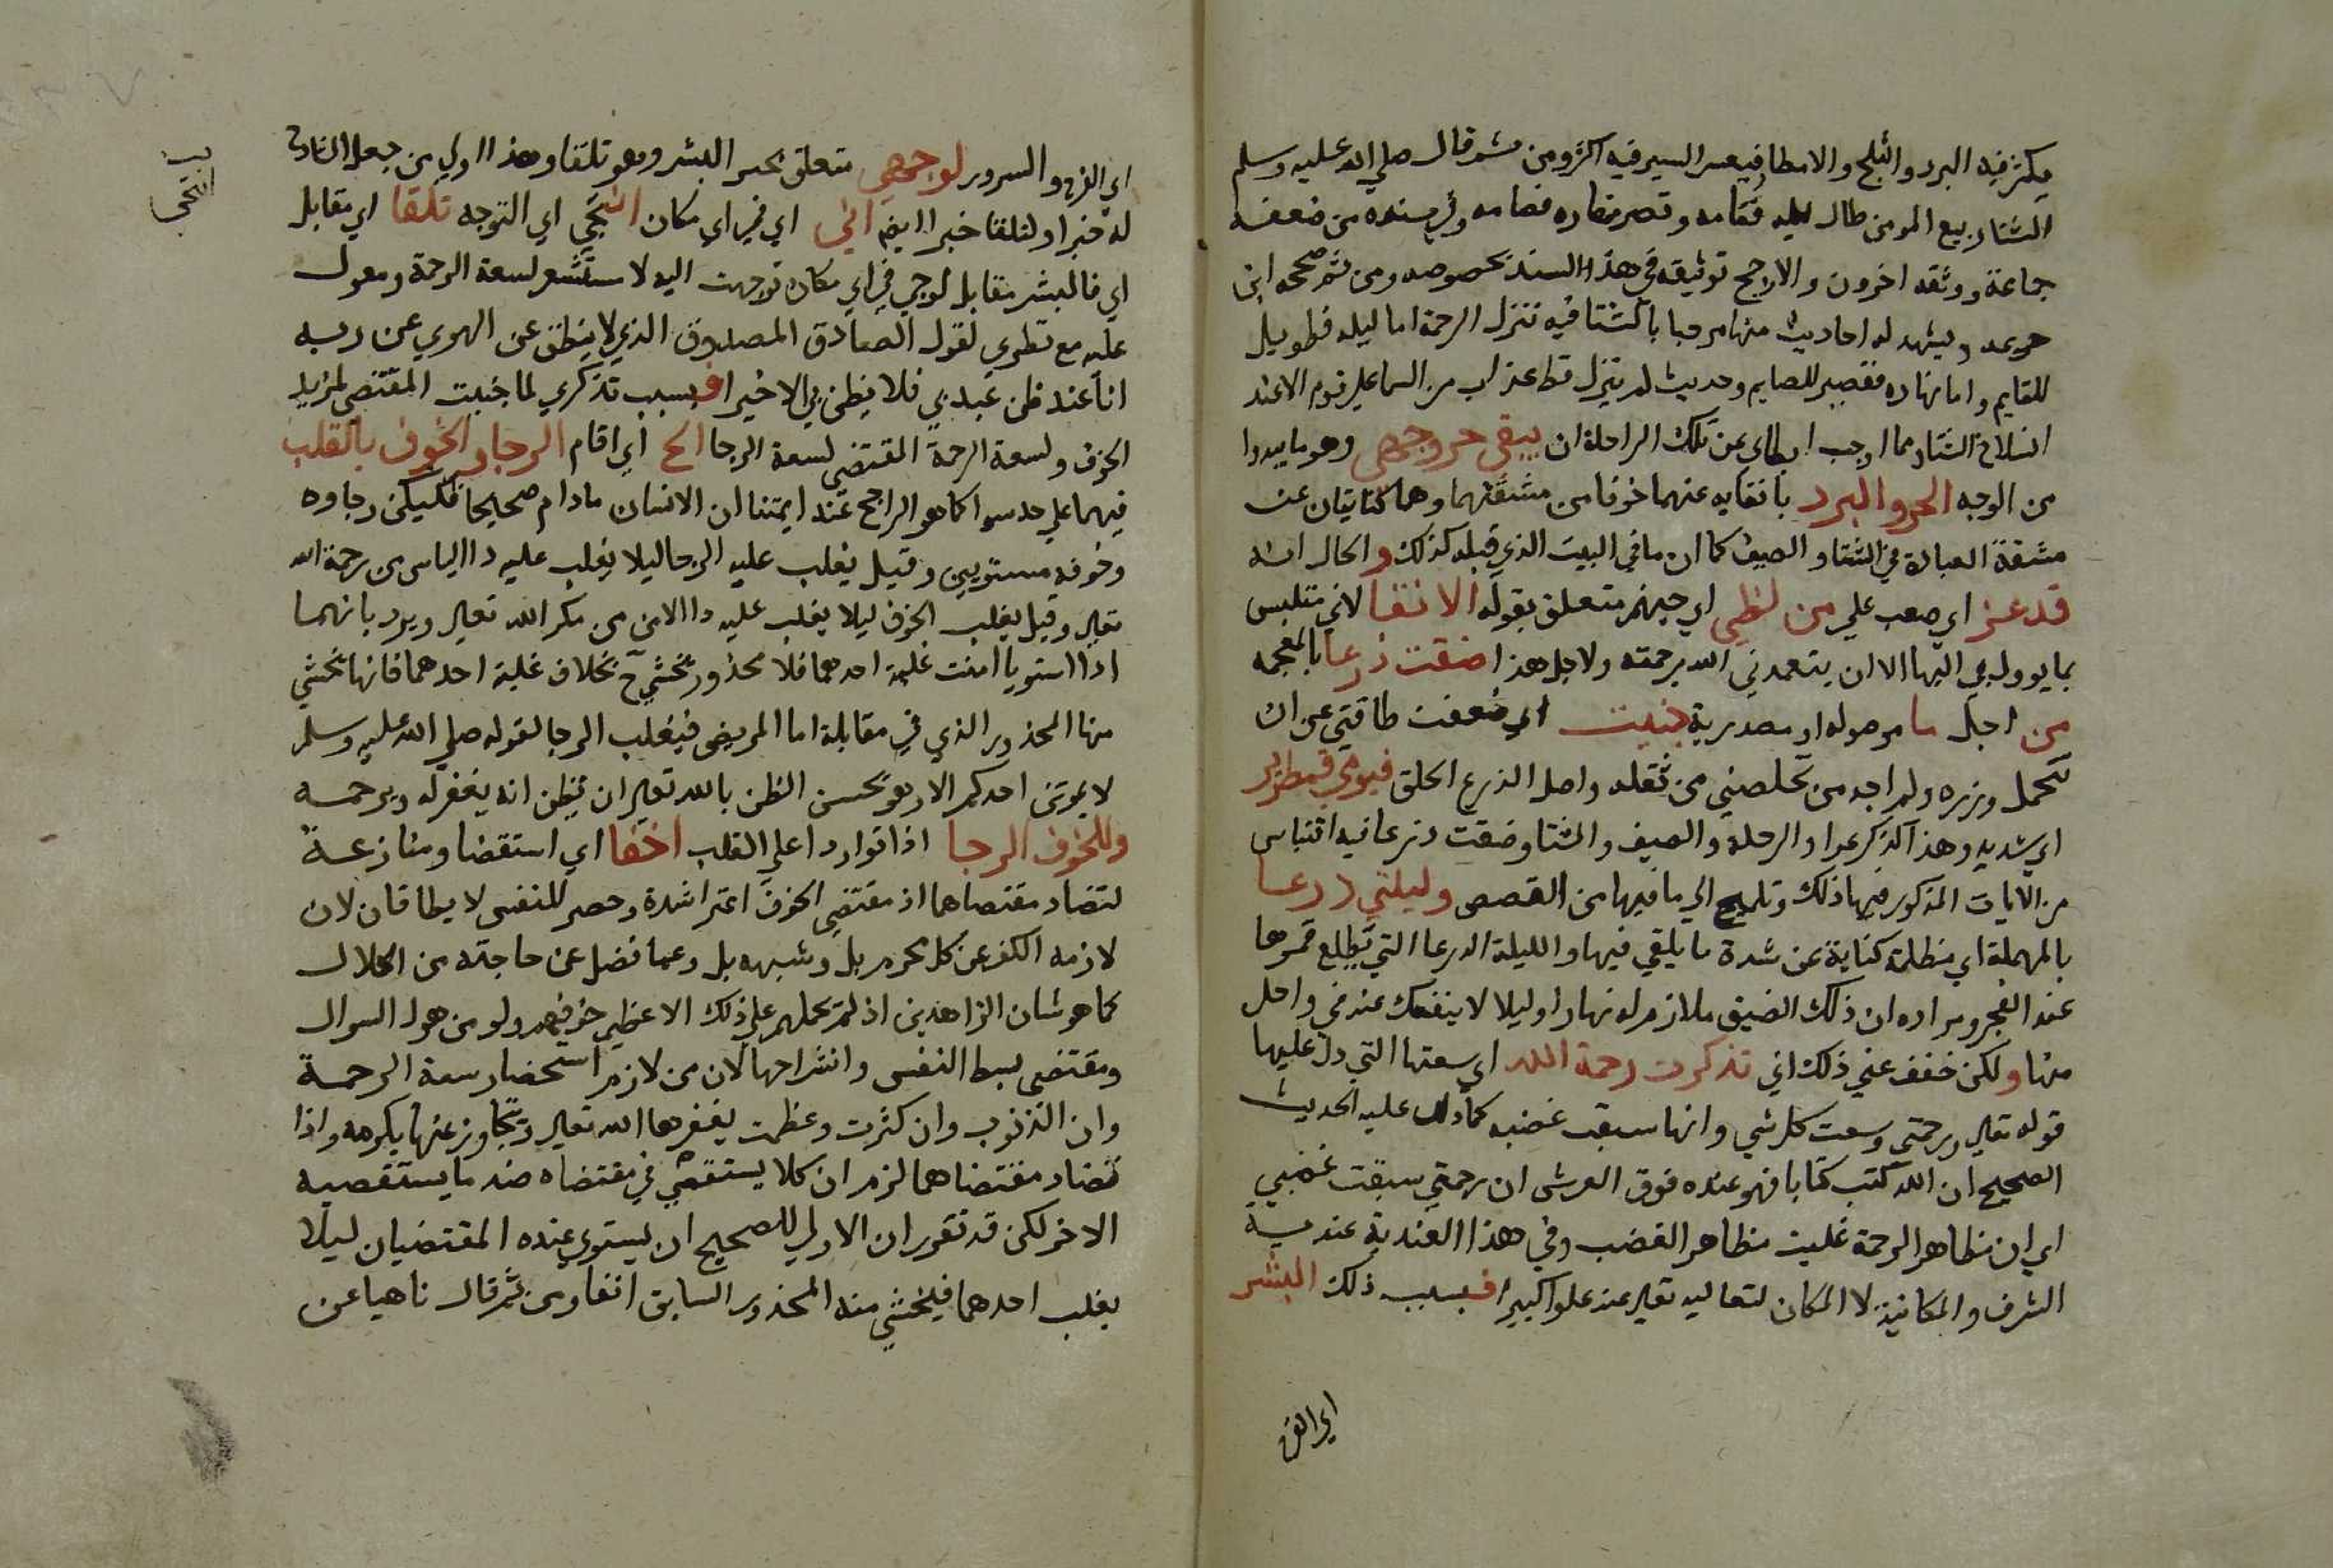 يكثر فيه البرد والثلج والامطار فيعسر السير فيه اكثر ومن ثم قال صلي الله عليه وسلم
الشتا ربيع المومن طال ليله فقامه وقصر نهاره فصامه وفي سنده من ضعفه
جماعة ووثقه اخرون والارجح توثيقه في هذا السند بخصوصه ومن ثم صححه ابن
خزيمه ويشهد له احاديث منها مرحبا بالشتا فيه تنزل الرحمة اما ليله فطويل
للقايم واما نهاره فقصير للصايم وحديث لم ينزل قط عذاب من السما علي قوم الا عند
انسلاخ الشتا ومما اوجب ابطاي عن تلك الراحلة ان يبقي حر وجهي وهو ما يبدوا
من الوجه الحر والبرد باتقايه عنهما خوفا من مشقتهما وهما كنايتان عن
مشقة العبادة في الشتا والصيف كما ان ما في البيت الذي قبله كذلك و الحال انه
قد عز اي صعب علي من لظي اي جهنم متعلق بقوله الاتقا لاني متلبس
بما يوول بي اليها الا ان يتغمدني الله برحمته ولاجل هذا ضقت ذرعا بالمعجمه
من اجل ما موصوله او مصدرية جنيت اي ضعفت طاقتي عن ان
تحمل وزره ولم اجد من تخلصني من ثقله واصل الذرع الخلق فيومي قمطرير
اي شديد وهذا كذكر عبرا والرحلة والصيف والشتا وضقت ذرعا فيه اقتباس
من الايات المذكور فيها ذلك وتلميح الي ما فيها من القصص وليلتي درعا
بالمهملة اي مظلمة كناية عن شدة ما يلقي فيها والليلة الدرعا التي يطلع قمرها
عند الفجر ومراده ان ذلك الضيق ملازم له نهارا وليلا لا ينفك عنه في واحد
منها ولكن خفف عني ذلك اني تذكرت رحمة الله اي سعتها التي دل عليها
قوله تعالي ورحمتي وسعت كل شي وانها سبقت غضبه كما دل عليه الحديث
الصحيح ان الله كتب كتابا فهو عنده فوق العرش ان رحمتي سبقت غضبي
اي ان مظاهر الرحمة غلبت مظاهر الغضب وفي هذا العندية عندية
الشرف والمكانية لا المكان لتعاليه تعالي عنه علوا كبيرا فبسبب ذلك البشر
اي الفرح
اي الفرح والسرور لوجهي متعلق بخبر البشر وهو تلقا وهذا اولي من جعل
له خبرا ولتلقا خبرا ايضا اني اي في اي مكان انتحي اي التوجه تلقا اي مقابل
اي فالبشر مقابل لوجهي في اي مكان توجهت اليه لاستشعر لسعة الرحمة ومعول
عليه مع نظري لقول الصادق المصدوق الذي لا ينطق عن الهوي عن ربه
انا عند ظن عبدي فلا يظن بي الا خيرا فبسبب تذكري لما جنيت المقتضي لمزيد
الخوف ولسعة الرحمة المقتضي لسعة الرجا الح اي اقام الرجا والخوف بالقلب
فيهما علي حد سوا كما هو الراجح عند ايمتنا ان الانسان مادام صحيحا فليكن رجاوه
وخوفه مستويين وقيل يغلب عليه الرجا ليلا يغلب عليه دا الياس من رحمة الله
تعالي وقيل يغلب الخوف ليلا يغلب عليه دا الامن من مكر الله تعالي ويرد بانهما
اذا استويا امنت غلبة احدهما فلا محذور يخشي ح بخلاف غلبة احدهما فانها تخشي
منها المحذور الذي في مقابلة اما المريض فيغلب الرجا لقوله صلي الله عليه وسلم
لا يموتن احدكم الا وهو يحسن الظن بالله تعالي ان يظن انه يغفر له ويرحمه
وللخوف الرجا اذا تواردا علي القلب احفا اي استقضا ومنازعة
لتضاد مقتضاهما اذ مقتضي الخوف اعترا شدة وحصر للنفس لا يطاقان لان
لازمه الكف عن كل محرم بل وشبهه بل وعما فضل عن حاجته من الحلال
كما هو شان الزاهدين اذ لم يحملهم علي ذلك الا عظيم خوفهم ولو من هول السوال
ومقتضي بسط النفس وانشراحها لان من لازم استحضار سعة الرحمة
وان الذنوب وان كثرت وعظمت يغفرها الله تعالي ويتجاوز عنها بكرمه واذا
تضاد مقتضاهما لزم ان كلا يستقصي في مقتضاه ضد ما يستقصيه
الاخر لكن قد تقرر ان الاولي للصحيح ان يستوي عنده المقتضيان ليلا
يغلب احدهما فيخشي منه المحذور السابق انفا ومن ثم قال ناهيا عن